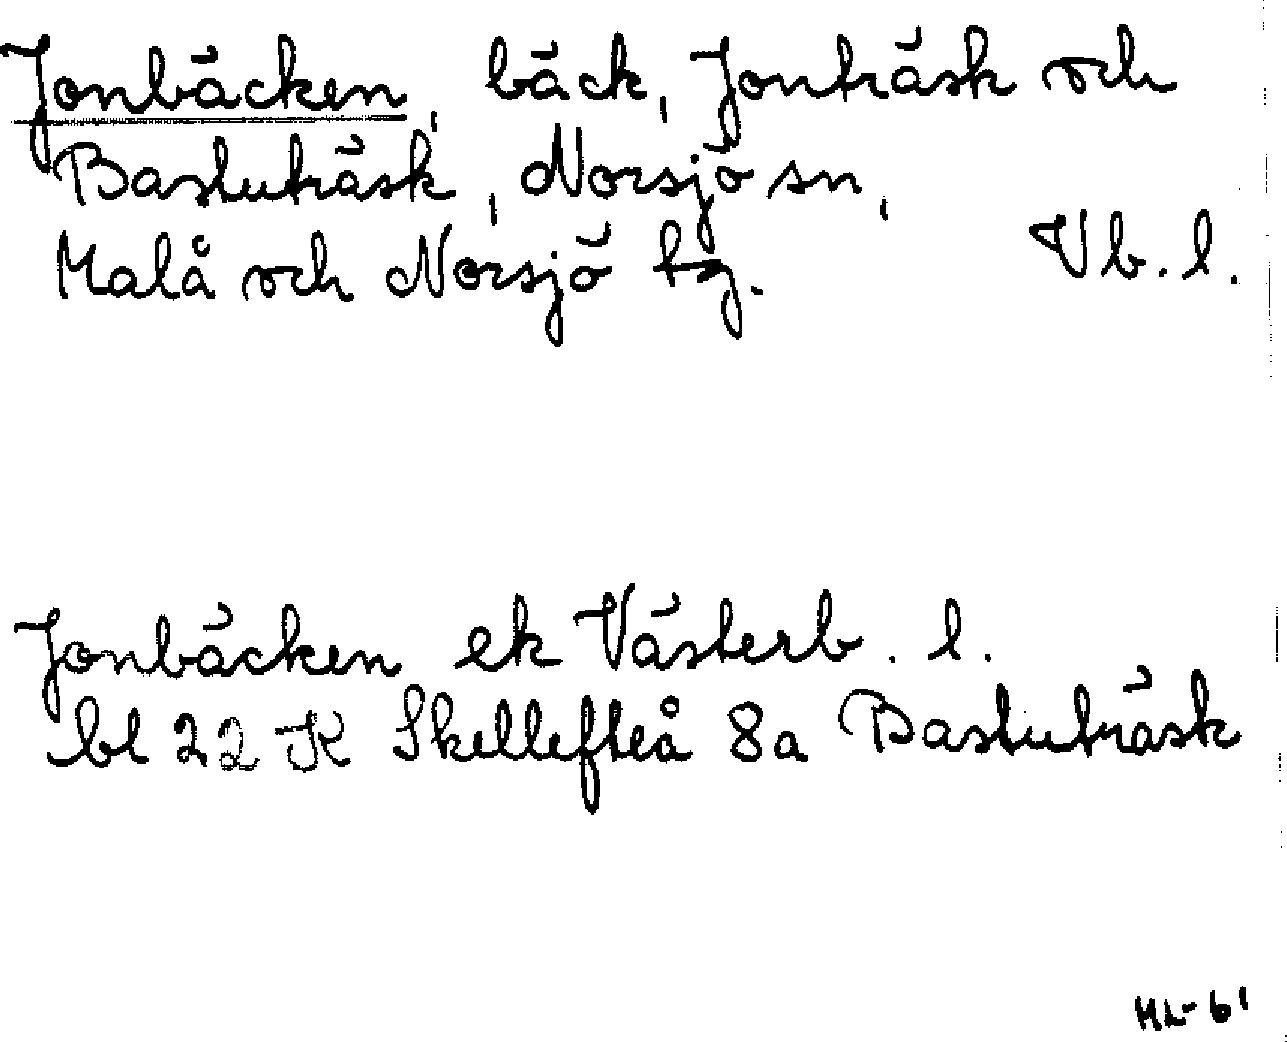 Jonbäcken, bäck, Jonträsk och
Bastuträsk, Norsjö sn,
Malå och Norsjö tg. Vb. l.
Jonbäcken ek Västerb. l.
bl 22 K Skellefteå 8a Bastuträsk
ML-61